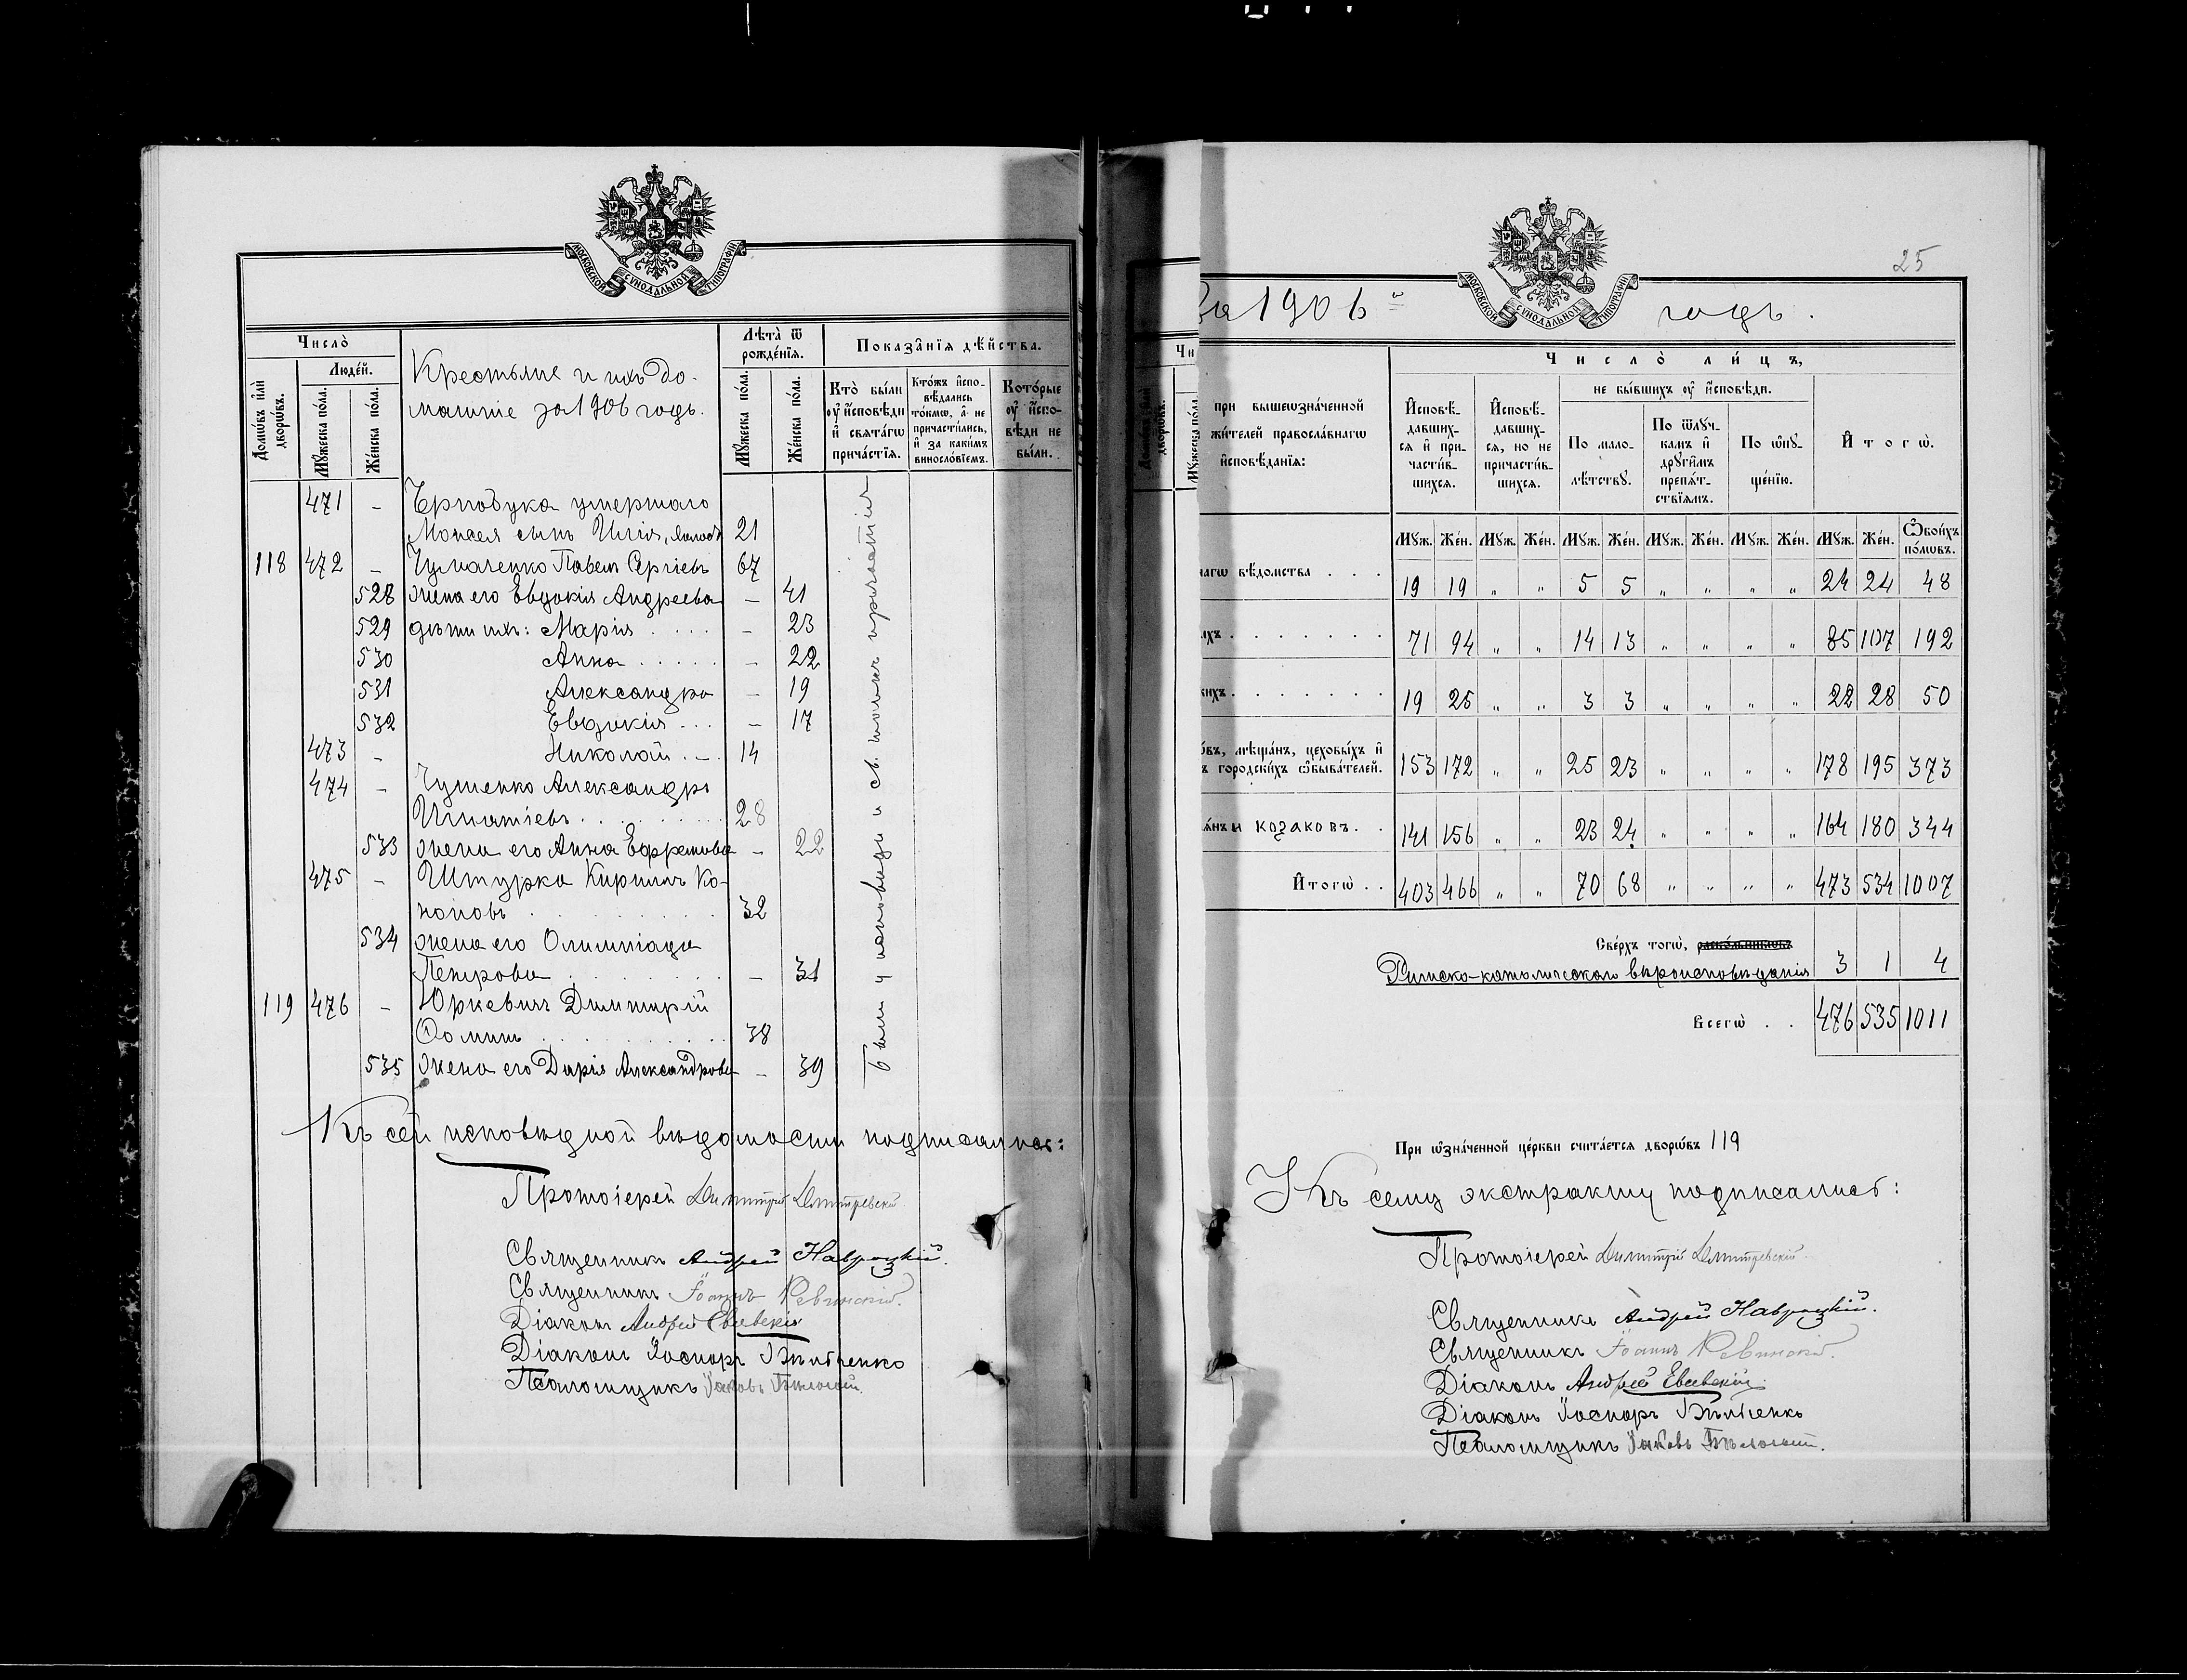 МОСКОВСКОЙ СѴНОДАЛЬНОЙ ТИПОГРАФІИ
Число̀
Домѡвъ и҆лѝ дворѡвъ.
Люде́й.
Мꙋжеска по́ла.
Же́нска по́ла.
Крестьяне и ихъ до-
машніе за 1906 годъ.
Лѣта̀ ѿ рожде́нїѧ.
Мꙋжеска по́ла.
Же́нска по́ла.
Показа̑нїѧ дѣ́йства.
Кто̀ бы́ли ᲂу҆ и҆сповѣди и҆ свѧта́гѡ прича́стїѧ.
Кто́жъ и҆спо-вѣдались то́кмѡ, а҆ не причасти́лись, и҆ за каки́мъ виносло́вїемъ.
Кото́рые ᲂу҆ и҆спо-вѣди не бы́ли.
471 -
умершаго
Моисея сынъ Илія, 21
118 472 - Чумаченко Павелъ Сергіевъ 67
528 жена его Евдокія Андреева - 41
529 дѣти ихъ: Марія . . . . - 23
530 Анна . . . . . - 22
531 Александра - 19
532 Евдокія . . . - 17
473 - Николай . - . 14
474 - Александръ
Игнатіевъ . . . . . . . . 28
533 жена его Анна Ефремова - 22
475 - Штурка Кириллъ Ко-
новъ . . . . . . . . . 32
534 жена его Олимпіада
Петрова . . . . . . . - 31
119 476 - Юркевичъ Димитрій
Ѳоминъ . . . . . . . . 38
535 жена его Дарія Александрова - 39
Были у исповѣди и св. причастія
Къ сей исповѣдной вѣдомости подписались:
Протоіерей Димитрій Дмитревскій
Священникъ Андрей Навроцкій.
Священникъ Іоаннъ
Діаконъ Андрей
Діаконъ
Псаломщикъ Іаковъ
25
МОСКОВСКОЙ СѴНОДАЛЬНОЙ ТИПОГРАФІИ
За 1906 й годъ.
при вышеѡзна́ченной
жи́телей правосла́внагѡ
и҆сповѣ́данїѧ:
Число̀ ли́цъ,
И҆сповѣ-давших-сѧ и҆ при-части́в-шихсѧ.
И҆сповѣ-давших-сѧ, но не причасти́в-шихсѧ.
не бы́вшихъ ᲂу҆ и҆сповѣди.
По мало-лѣтствꙋ.
По ѿлꙋч-камъ и҆ дрꙋги̑мъ препѧ́т-ствїѧмъ.
По ѡ҆пꙋ-ще́нїю.
И҆тогѡ̀.
Мꙋж. Же́н. Мꙋж. Же́н. Мꙋж. Же́н. Мꙋж. Же́н. Мꙋж. Же́н. Мꙋж. Же́н. Ѻ҆бои́хъ по́лѡвъ.
нагѡ вѣ́домства . . . 19 19 " " 5 5 " " " " 24 24 48
ихъ . . . . . . . 71 94 " " 14 13 " " " " 85 107 192
кихъ . . . . . . . 19 25 " " 3 3 " " " " 22 28 50
ѡвъ, мѣща́нъ, цеховы́хъ и҆
ъ городски́хъ ѡ҆быва́телей. 153 172 " " 25 23 " " " " 178 195 373
ѧнъ и козаковъ . . 141 156 " " 23 24 " " " " 164 180 344
И҆тогѡ̀ . . 403 466 " " 70 68 " " " " 473 534 1007
Све́рхъ тогѡ̀, раско́льниковъ
Римско-католическаго вѣроисповѣданія 3 1 4
Всегѡ̀ . . 476 535 1011
При ѡ҆зна́ченной це́ркви счита́етсѧ дворѡ́въ 119
Къ сему экстракту подписались:
Протоіерей Димитрій Дмитревскій
Священникъ Андрей Навроцкій.
Священникъ Іоаннъ
Діаконъ Андрей
Діаконъ
Псаломщикъ Іаковъ